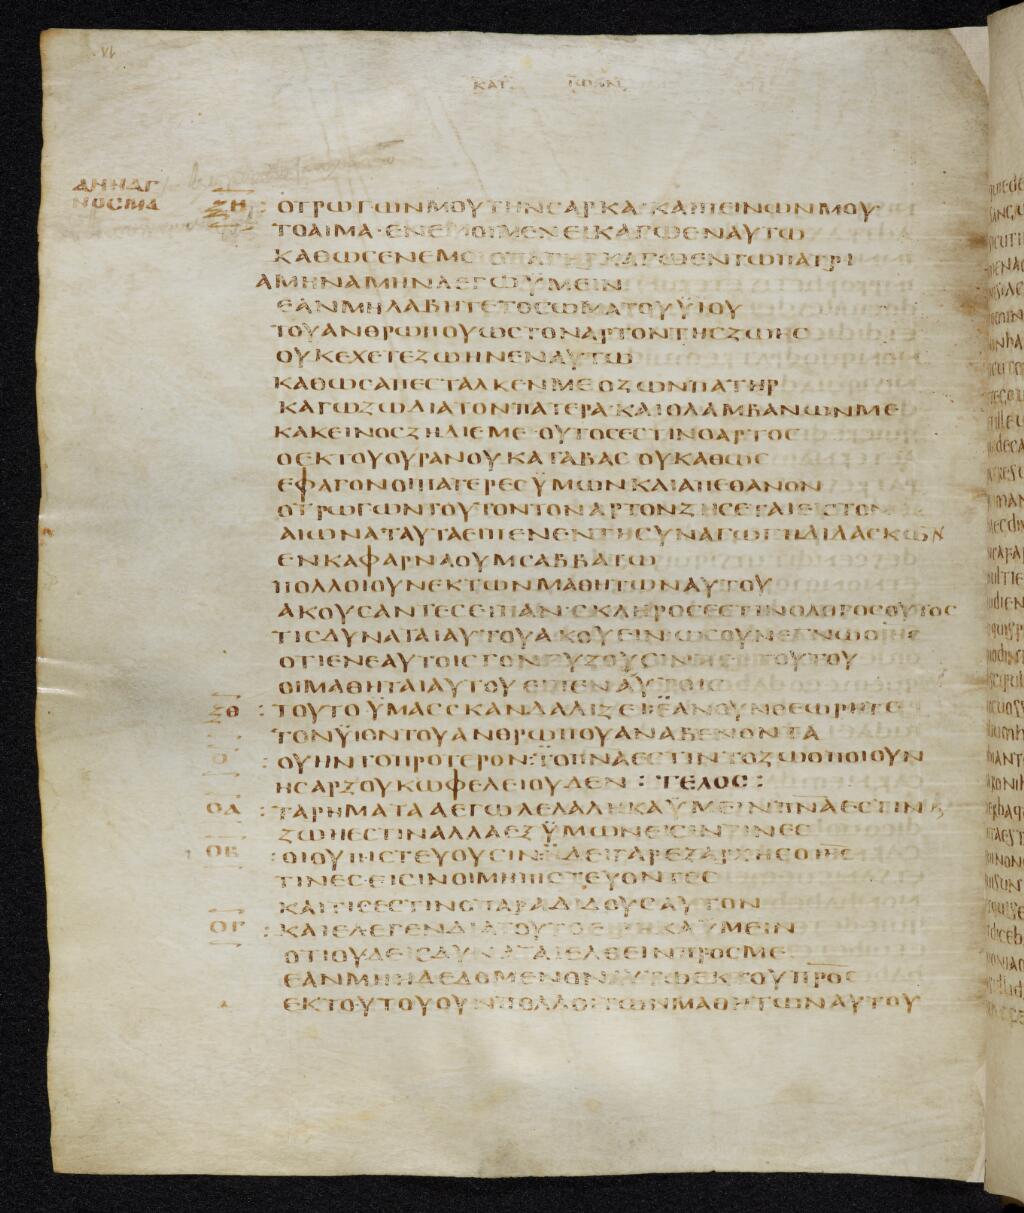 ΚΑΤ ΙΩΑΝ
ΑΝΝΑΓ
ΝΟΣΜΑ
ΞΗ : ΟΤΡΩΓΩΝΜΟΥΤΗΝΣΑΡΚΑ·ΚΑΙΠΕΙΝΩΝΜΟΥ
ΤΟΑΙΜΑ·ΕΝΕΜΟΙΜΕΝΕΙΚΑΓΩΕΝΑΥΤΩ
ΚΑΘΩΣΕΝΕΜΟΙΟΠΑΤΗΡΚΑΓΩΕΝΤΩΠΑΤΡΙ
ΑΜΗΝΑΜΗΝΛΕΓΩΫΜΕΙΝ
ΕΑΝΜΗΛΑΒΗΤΕΤΟΣΩΜΑΤΟΥΫΙΟΥ
ΤΟΥΑΝΘΡΩΠΟΥΩΣΤΟΝΑΡΤΟΝΤΗΣΖΩΗΣ
ΟΥΚΕΧΕΤΕΖΩΗΝΕΝΑΥΤΩ
ΚΑΘΩΣΑΠΕΣΤΑΛΚΕΝΜΕΟΖΩΝΠΑΤΗΡ
ΚΑΓΩΖΩΔΙΑΤΟΝΠΑΤΕΡΑ·ΚΑΙΟΛΑΜΒΑΝΩΝΜΕ
ΚΑΚΕΙΝΟΣΖΗΔΙΕΜΕ·ΟΥΤΟΣΕΣΤΙΝΟΑΡΤΟΣ
ΟΕΚΤΟΥΟΥΡΑΝΟΥΚΑΤΑΒΑΣ·ΟΥΚΑΘΩΣ
ΕΦΑΓΟΝΟΙΠΑΤΕΡΕΣΫΜΩΝΚΑΙΑΠΕΘΑΝΟΝ
ΟΤΡΩΓΩΝΤΟΥΤΟΝΤΟΝΑΡΤΟΝΖΗΣΕΤΑΙΕΙΣΤΟΝ
ΑΙΩΝΑΤΑΥΤΑΕΙΠΕΝΕΝΤΗΣΥΝΑΓΩΓΗΔΙΔΑΣΚΩΝ
ΕΝΚΑΦΑΡΝΑΟΥΜΣΑΒΒΑΤΩ
ΠΟΛΛΟΙΟΥΝΕΚΤΩΝΜΑΘΗΤΩΝΑΥΤΟΥ
ΑΚΟΥΣΑΝΤΕΣΕΙΠΑΝ·ΣΚΛΗΡΟΣΕΣΤΙΝΟΛΟΓΟΣΟΥΤΟΣ
ΤΙΣΔΥΝΑΤΑΙΑΥΤΟΥΑΚΟΥΕΙΝ·ΩΣΟΥΝΕΓΝΩΟΙΗΣ
ΟΤΙΕΝΕΑΥΤΟΙΣΓΟΝΓΥΖΟΥΣΙΝΠΕΡΙΤΟΥΤΟΥ
ΟΙΜΑΘΗΤΑΙΑΥΤΟΥΕΙΠΕΝΑΥΤΟΙΣ
ΞΘ : ΤΟΥΤΟΫΜΑΣΣΚΑΝΔΑΛΙΖΕΙ·ΕΑΝΟΥΝΘΕΩΡΗΤΕ
ΤΟΝΫΙΟΝΤΟΥΑΝΘΡΩΠΟΥΑΝΑΒΕΝΟΝΤΑ
Ο : ΟΥΗΝΤΟΠΡΟΤΕΡΟΝ:ΤΟΠΝΑΕΣΤΙΝΤΟΖΩΟΠΟΙΟΥΝ
ΗΣΑΡΖΟΥΚΩΦΕΛΕΙΟΥΔΕΝ : ΤΕΛΟΣ :
ΟΑ : ΤΑΡΗΜΑΤΑΑΕΓΩΛΕΛΑΛΗΚΑΫΜΕΙΝΠΝΑΕΣΤΙΝ
ΖΩΗΕΣΤΙΝΑΛΛΑΕΖΫΜΩΝΕΙΣΙΝΤΙΝΕΣ
ΟΒ : ΟΙΟΥΠΙΣΤΕΥΟΥΣΙΝ:ΗΔΕΙΓΑΡΕΞΑΡΧΗΣΟΙΗΣ
ΤΙΝΕΣ·ΕΙΣΙΝΟΙΜΗΠΙΣΤΕΥΟΝΤΕΣ
ΚΑΙΤΙΣΕΣΤΙΝΟΠΑΡΑΔΙΔΟΥΣΑΥΤΟΝ
ΟΓ : ΚΑΙΕΛΕΓΕΝΔΙΑΤΟΥΤΟΕΙΡΗΚΑΫΜΕΙΝ
ΟΤΙΟΥΔΕΙΣΔΥΝΑΤΑΙΕΛΘΕΙΝΠΡΟΣΜΕ
ΕΑΝΜΗΗΔΕΔΟΜΕΝΟΝΑΥΤΩΕΚΤΟΥΠΡΟΣ
ΕΚΤΟΥΤΟΥΟΥΝΠΟΛΛΟΙΤΩΝΜΑΘΗΤΩΝΑΥΤΟΥ